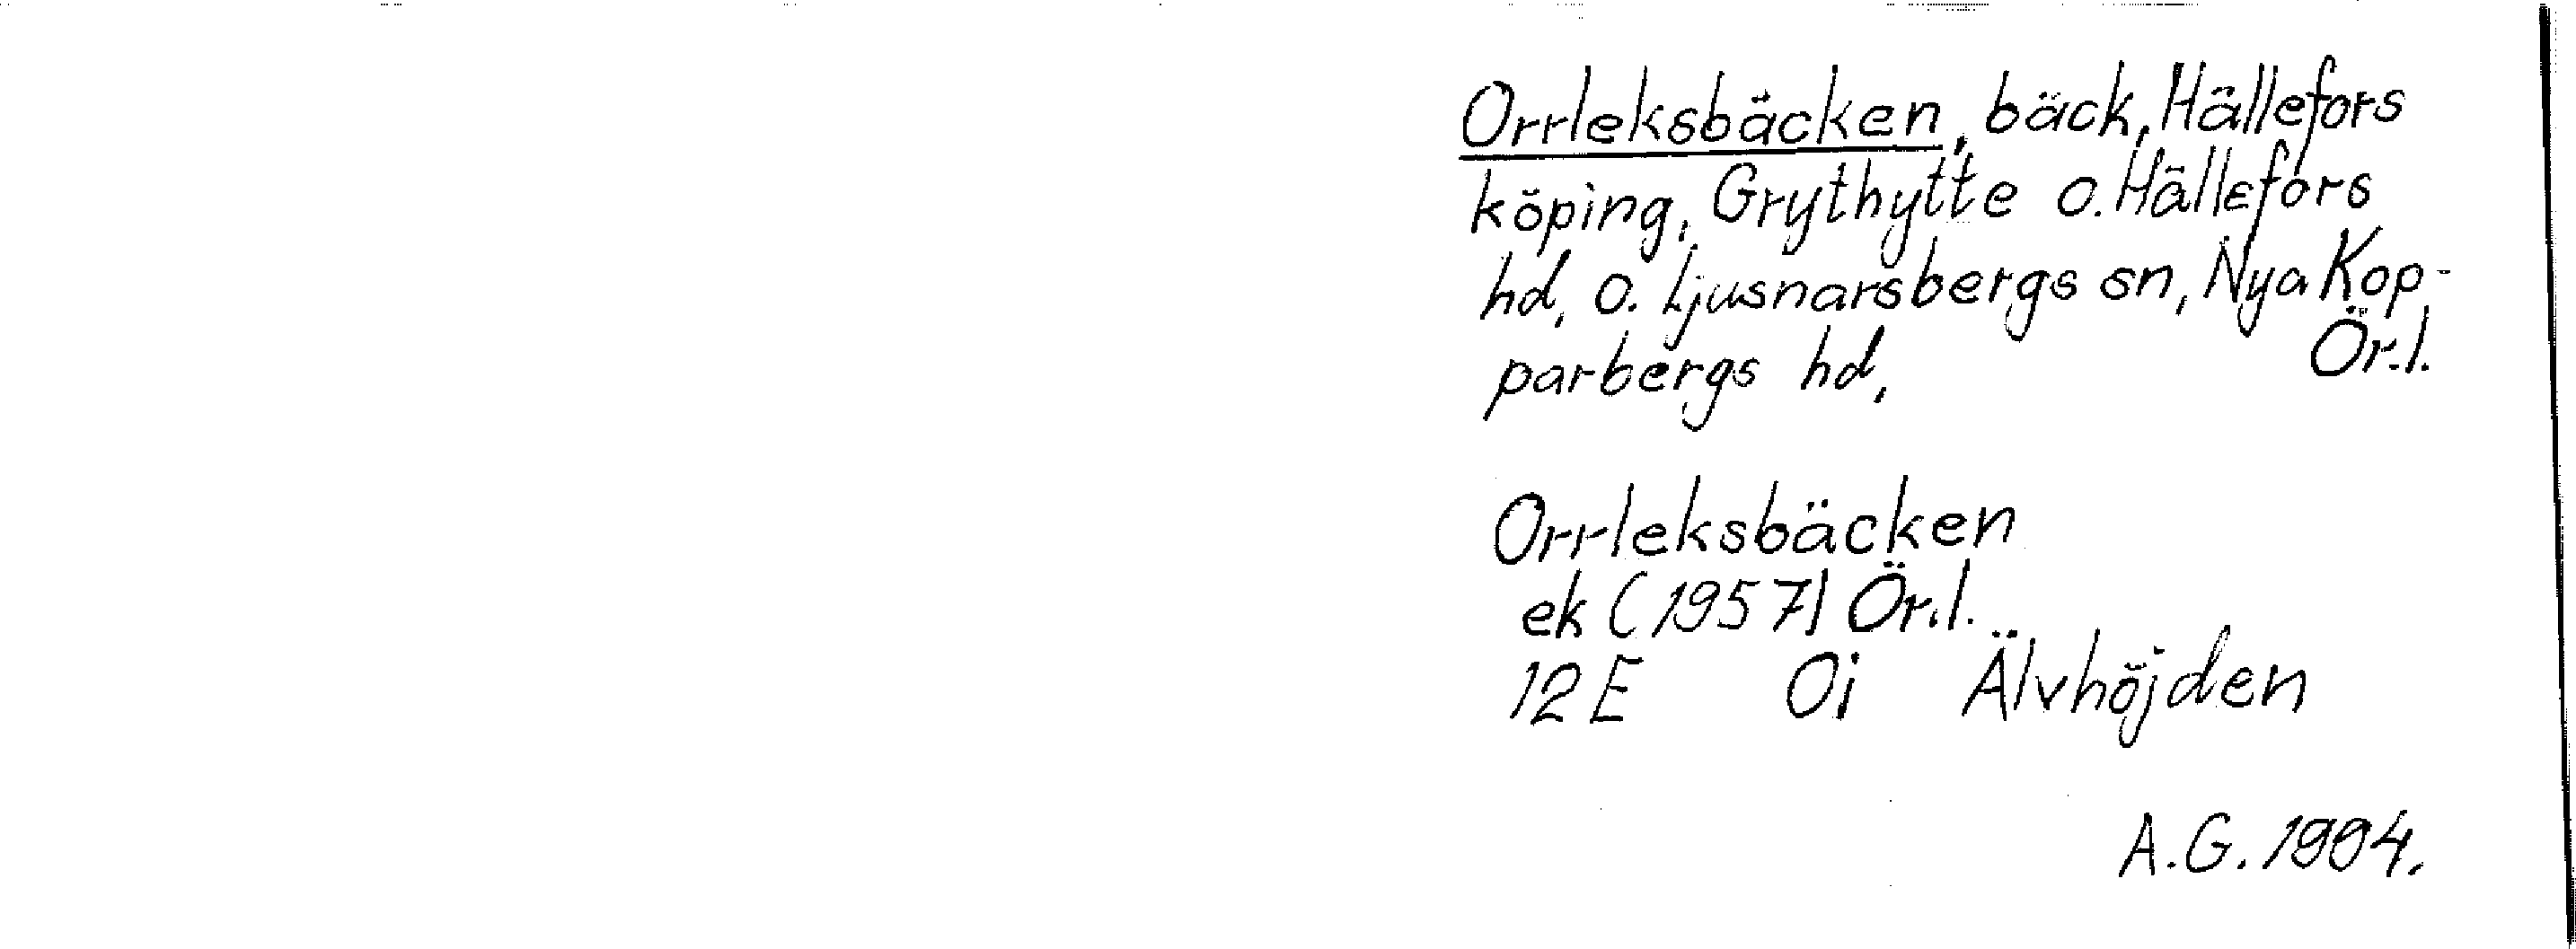 Orrleksbäcken, bäck, Hällefors
köping, Grythytte o. Hällefors
hd, o. Ljusnarsbergs sn, Nya Kop-
parbergs hd, Ör.l.
Orrleksbäcken
ek (1957) Ör.l.
12E 0i Älvhöjden
A.G. 1994.